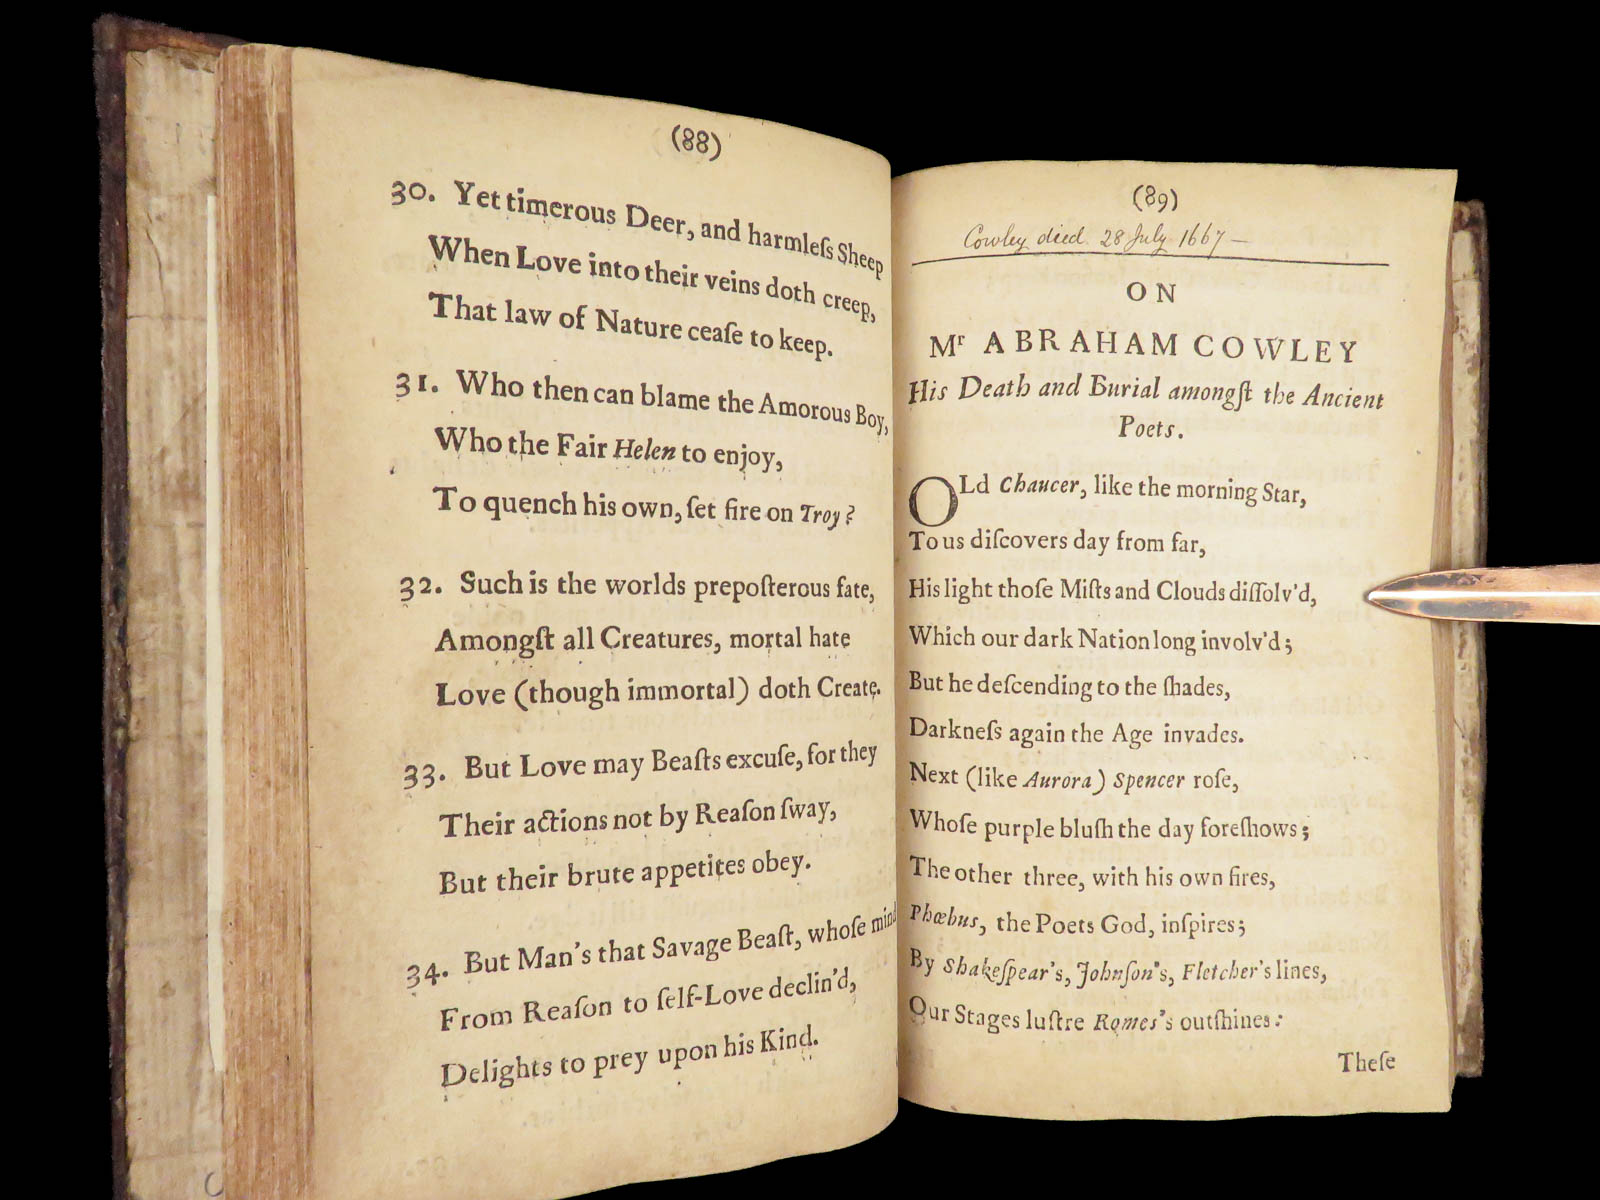 (88)
30. Yet timerous Deer, and harmleſs Sheep
When Love into their veins doth creep,
That law of Nature ceaſe to keep.
31. Who then can blame the Amorous Boy,
Who the Fair Helen to enjoy,
To quench his own, ſet fire on Troy?
32. Such is the worlds prepoſterous fate,
Amongſt all Creatures, mortal hate
Love (though immortal) doth Create.
33. But Love may Beaſts excuſe, for they
Their actions not by Reaſon ſway,
But their brute appetites obey.
34. But Man's that Savage Beaſt, whoſe mind
From Reaſon to ſelf-Love declin'd,
Delights to prey upon his Kind.
(89)
Cowley died 28 July 1667—
ON
Mr ABRAHAM COWLEY
His Death and Burial amongſt the Ancient
Poets.
OLd Chaucer, like the morning Star,
To us diſcovers day from far,
His light thoſe Miſts and Clouds diſſolv'd,
Which our dark Nation long involv'd;
But he deſcending to the ſhades,
Darkneſs again the Age invades.
Next (like Aurora) Spencer roſe,
Whoſe purple bluſh the day foreſhows;
The other three, with his own fires,
Phœbus, the Poets God, inſpires;
By Shakeſpear's, Johnſon's, Fletcher's lines,
Our Stages luſtre Romes's outſhines:
Theſe